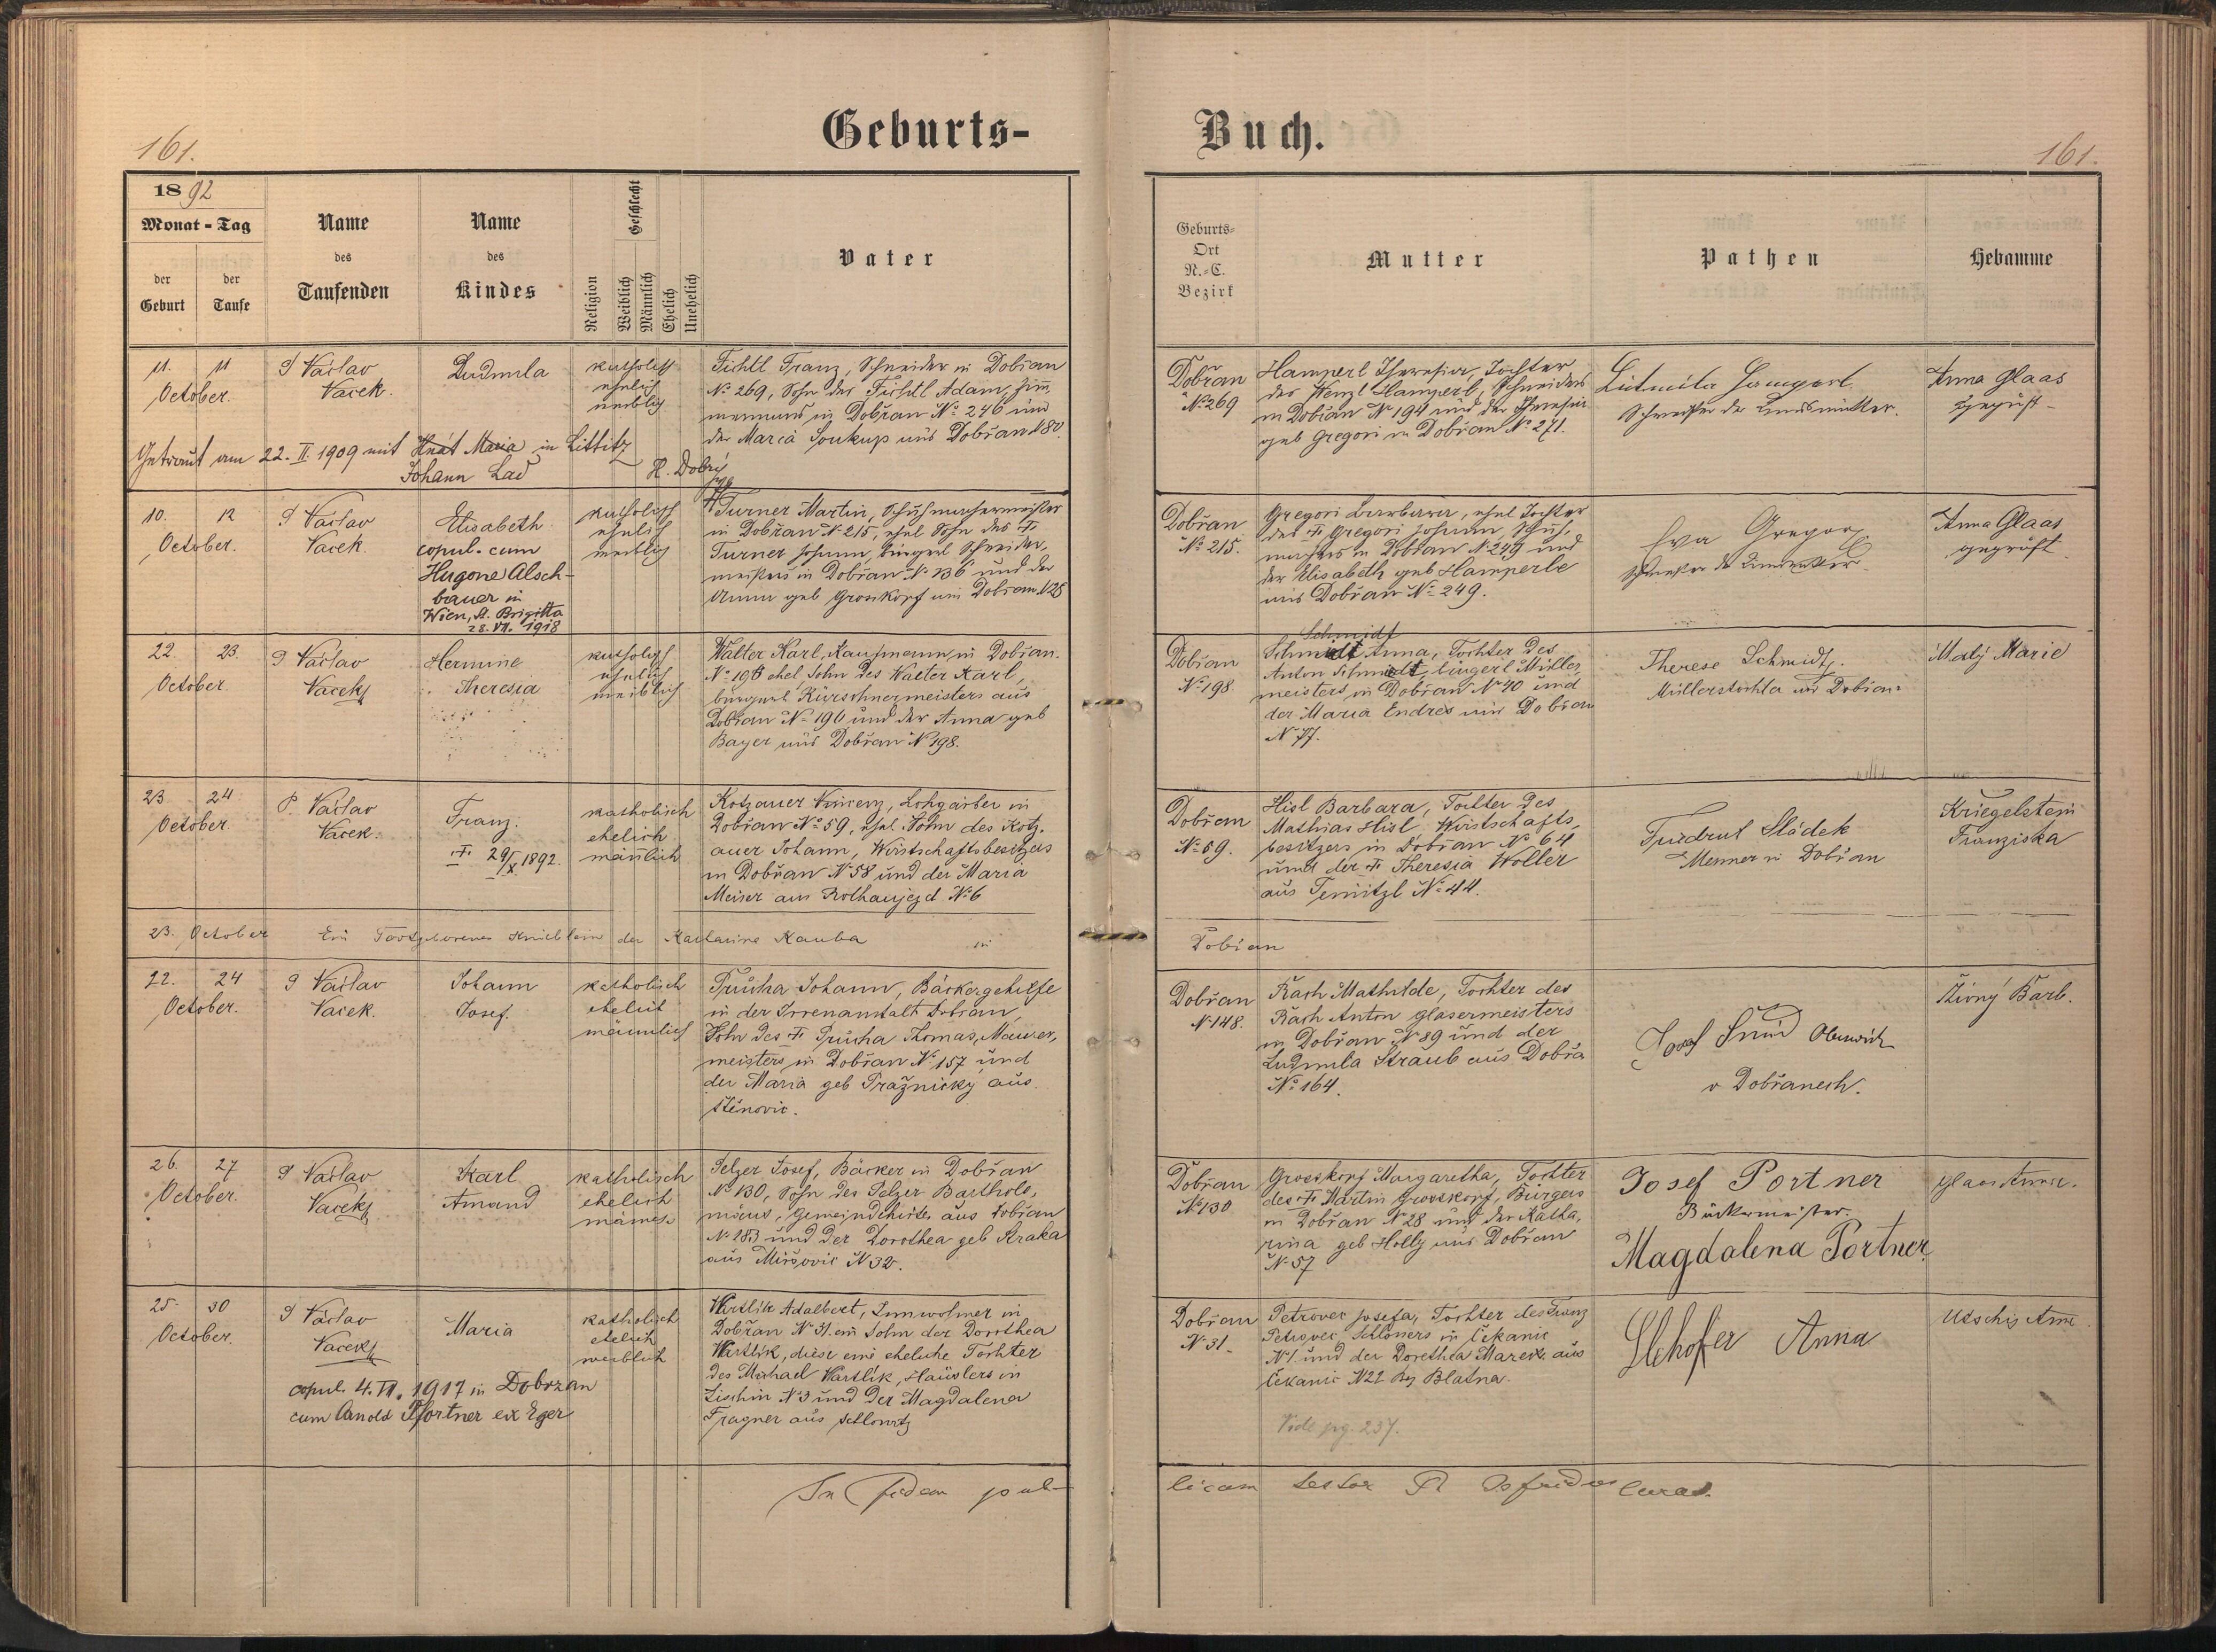 161.
Geburts-
Buch.
161.
1892
Monat - Tag
der Geburt
der Taufe
Name des Taufenden
Name des Kindes
Religion
Geschlecht
Weiblich
Männlich
Ehelich
Unehelich
Vater
Geburts-
Ort
N.-C.
Bezirk
Mutter
Pathen
Hebamme
11. 11
October.
P Václav
Vacek.
Ludmila
katholisch
ehelich
weiblich
Fichtl Franz, Schneider in Dobřan
No 269, Sohn des Fichtl Adam, Zim̄
mermanns in Dobřan No 246 und
der Maria Soukup aus Dobřan N 80.
Dobřan
No 269
Hamperl Theresia, Tochter
des Wenzl Hamperl, Schneiders
in Dobřan No 194 und der Theresia
geb Gregori in Dobřan No 271.
Schwester der Kindsmutter.
Anna Glaas
geprüft
Getraut am 22. II. 1909 mit Hnát Maria in Littitz
Johann Lad
10. 12
October.
P Václav
Vacek.
Elisabeth
copul. cum
Hugone Alsch-
bauer in
Wien, St. Brigitta
28. VII. 1918
katholisch
ehelich
weiblich
Turner Martin, Schuhmachermeister
in Dobřan N 215, ehel Sohn des †
Turner Johann, bürgerl Schneider-
meisters in Dobřan N 136 und der
Anna geb Grosskopf aus Dobřan N 28
Dobřan
No 215.
Gregori Barbara, ehel Tochter
des † Gregori Johann, Schuh-
machers in Dobřan N 249 und
der Elisabeth geb Hamperle
aus Dobřan No 249.
Eva Gregor
Anna Glaas
geprüft
22. 23.
October.
P Václav
Vacek
Hermine
Theresia
katholisch
ehelich
weiblich
Walter Karl, Kaufmann in Dobřan
No 198 ehel Sohn des Walter Karl,
bürgerl Kürschnermeisters aus
Dobřan No 190 und der Anna geb
Bayer aus Dobřan N 198.
Dobřan
No 198
Schmidt
Schmidt Anna, Tochter des
Anton Schmidt, bürgerl Müller
meisters in Dobřan No 40 und
der Maria Endres aus Dobřan
No 77.
Therese Schmidt
Müllerstochter aus Dobřan
Malý Marie
23 24
October
P. Václav
Vacek.
Franz.
† 29/X 1892.
katholisch
ehelich
män̄lich
Kotzauer Vincenz, Lohgärber in
Dobřan No 59, ehel. Sohn des Kotz-
auer Johann, Wirtschaftsbesitzers
in Dobřan N 58 und der Maria
Meiser aus Rothaujezd No 6
Dobřan
No 59.
Hisl Barbara, Tochter des
Mathias Hisl, Wirtschafts-
besitzers in Dobřan No 64
und der † Theresia Woller
aus No 44.
Sládek
in Dobřan
Kriegelstein
Franziska
23. October Ein Todtgeborenes Knäblein der Katharina Kauba in
Dobřan
22. 24
October.
P Václav
Vacek.
Johann
Josef.
katholisch
ehelich
männlich
Průcha Johann, Bäckergehilfe
in der Irrenanstalt Dobřan,
Sohn des † Průcha Thomas, Maurer-
meisters in Dobřan No 157 und
der Maria geb Pražnicky aus
Stěnovic.
Dobřan
N 148.
Rach Mathilde, Tochter des
Rach Anton Glasermeisters
in Dobřan N 89 und der
Ludmila Straub aus Dobřa
No 164.
Josef
v Dobřanech.
Živný Barb.
26. 27
October.
P Václav
Vacek
Karl
Amand
katholisch
ehelich
männl.
Pelzer Josef, Bäcker in Dobřan
No 130, Sohn des Pelzer Bartholo-
mäus, Gemeindehirtes aus Dobřan
No 183 und der Dorothea geb Straka
aus Mirovic N 32.
Dobřan
No 130
Grosskopf Margaretha, Tochter
des † Martin Grosskopf, Bürgers
in Dobřan N 28 und der Katha-
rina geb Holly aus Dobřan
N 57
Josef Portner
Bäckermeister.
Magdalena Portner
Glaas Anna.
25. 30
October.
P Václav
Vacek
Maria
katholisch
ehelich
weiblich
copul. 4. VI. 1917 in Dobrzan
cum Arnold Pfortner ex Eger
Wartlik Adalbert, Innwohner in
Dobřan N 31. ein Sohn der Dorothea
Wartlik, diese eine eheliche Tochter
des Michael Wartlik, Häuslers in
Zischin N 3 und der Magdalena
Fragner aus Schlowitz
Dobřan
N 31.
Petrovec Josefa, Tochter des Franz
Petrovec Schlossers in Čekanic
N 1 und der Dorothea Marek aus
Čekanic N 21 Bez Blatna.
Vide pg. 237.
Anna
In fidem pub-
licam testor